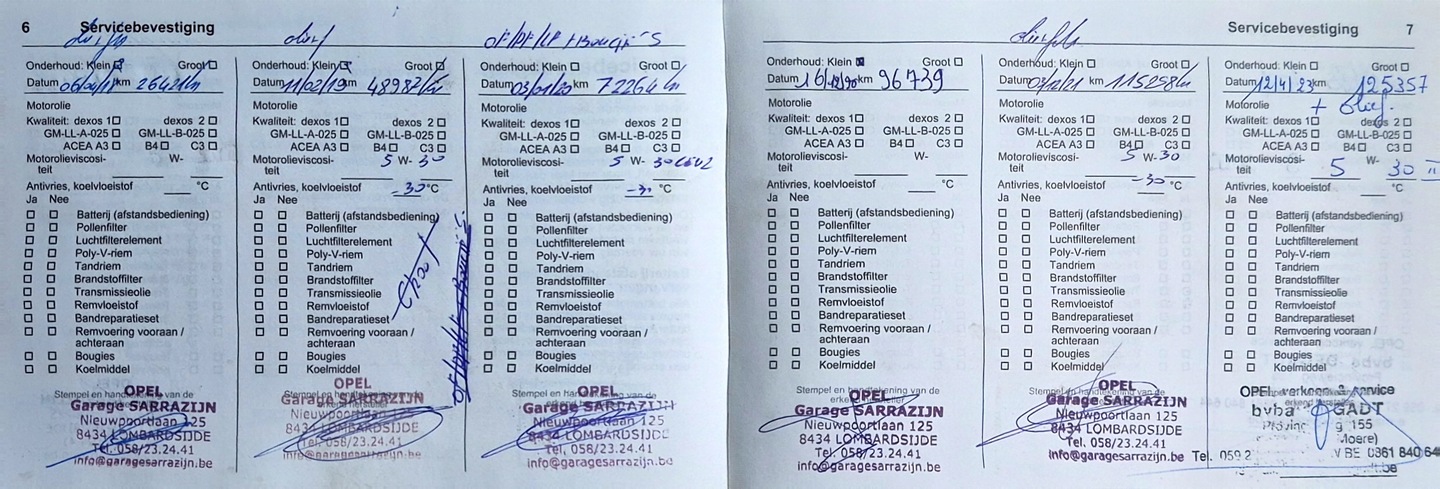 6 Servicebevestiging
Onderhoud: Klein Groot
Datum km 26421 km
Motorolie
Kwaliteit: dexos 1 dexos 2
GM-LL-A-025 GM-LL-B-025
ACEA A3 B4 C3
Motorolieviscosi- W-
teit
Antivries, koelvloeistof °C
Ja Nee
Batterij (afstandsbediening)
Pollenfilter
Luchtfilterelement
Poly-V-riem
Tandriem
Brandstoffilter
Transmissieolie
Remvloeistof
Bandreparatieset
Remvoering vooraan /
achteraan
Bougies
Koelmiddel
Stempel en handtekening van de
OPEL
Garage SARRAZIJN
Nieuwpoortlaan 125
8434 LOMBARDSIJDE
Tel. 058/23.24.41
info@garagesarrazijn.be
Onderhoud: Klein Groot
Datum 11/02/19 km 48987 km
Motorolie
Kwaliteit: dexos 1 dexos 2
GM-LL-A-025 GM-LL-B-025
ACEA A3 B4 C3
Motorolieviscosi- 5 W- 30
teit
Antivries, koelvloeistof -30 °C
Ja Nee
Batterij (afstandsbediening)
Pollenfilter
Luchtfilterelement
Poly-V-riem
Tandriem
Brandstoffilter
Transmissieolie
Remvloeistof
Bandreparatieset
Remvoering vooraan /
achteraan
Bougies
Koelmiddel
Stempel en handtekening van de
OPEL
Garage SARRAZIJN
Nieuwpoortlaan 125
8434 LOMBARDSIJDE
Tel. 058/23.24.41
info@garagesarrazijn.be
Onderhoud: Klein Groot
Datum 03/01/20 km 72264 km
Motorolie
Kwaliteit: dexos 1 dexos 2
GM-LL-A-025 GM-LL-B-025
ACEA A3 B4 C3
Motorolieviscosi- 5 W- 30
teit
Antivries, koelvloeistof °C
Ja Nee
Batterij (afstandsbediening)
Pollenfilter
Luchtfilterelement
Poly-V-riem
Tandriem
Brandstoffilter
Transmissieolie
Remvloeistof
Bandreparatieset
Remvoering vooraan /
achteraan
Bougies
Koelmiddel
Stempel en handtekening van de
OPEL
Garage SARRAZIJN
Nieuwpoortlaan 125
8434 LOMBARDSIJDE
Tel. 058/23.24.41
info@garagesarrazijn.be
Servicebevestiging 7
Onderhoud: Klein Groot
Datum km 96739
Motorolie
Kwaliteit: dexos 1 dexos 2
GM-LL-A-025 GM-LL-B-025
ACEA A3 B4 C3
Motorolieviscosi- W-
teit
Antivries, koelvloeistof °C
Ja Nee
Batterij (afstandsbediening)
Pollenfilter
Luchtfilterelement
Poly-V-riem
Tandriem
Brandstoffilter
Transmissieolie
Remvloeistof
Bandreparatieset
Remvoering vooraan /
achteraan
Bougies
Koelmiddel
Stempel en handtekening van de
OPEL
Garage SARRAZIJN
Nieuwpoortlaan 125
8434 LOMBARDSIJDE
Tel. 058/23.24.41
info@garagesarrazijn.be
Onderhoud: Klein Groot
Datum km 115258 km
Motorolie
Kwaliteit: dexos 1 dexos 2
GM-LL-A-025 GM-LL-B-025
ACEA A3 B4 C3
Motorolieviscosi- 5 W- 30
teit
Antivries, koelvloeistof -30 °C
Ja Nee
Batterij (afstandsbediening)
Pollenfilter
Luchtfilterelement
Poly-V-riem
Tandriem
Brandstoffilter
Transmissieolie
Remvloeistof
Bandreparatieset
Remvoering vooraan /
achteraan
Bougies
Koelmiddel
Stempel en handtekening van de
OPEL
Garage SARRAZIJN
Nieuwpoortlaan 125
8434 LOMBARDSIJDE
Tel. 058/23.24.41
info@garagesarrazijn.be
Onderhoud: Klein Groot
Datum 12/4/23 km 125357
Motorolie
Kwaliteit: dexos 1 dexos 2
GM-LL-A-025 GM-LL-B-025
ACEA A3 B4 C3
Motorolieviscosi- 5 W- 30
teit
Antivries, koelvloeistof °C
Ja Nee
Batterij (afstandsbediening)
Pollenfilter
Luchtfilterelement
Poly-V-riem
Tandriem
Brandstoffilter
Transmissieolie
Remvloeistof
Bandreparatieset
Remvoering vooraan /
achteraan
Bougies
Koelmiddel
OPEL service
bvba
155
Tel. 059 BE 0861 840